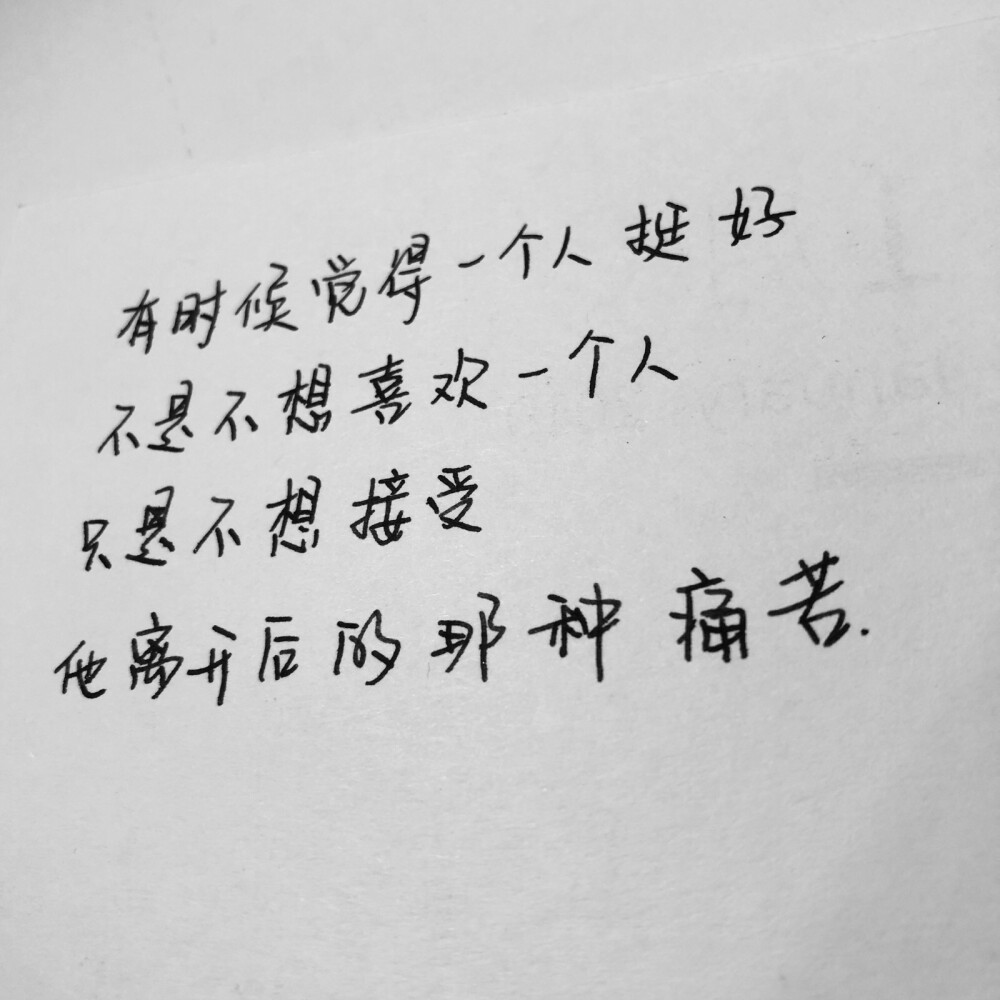 有时候觉得一个人挺好
不是不想喜欢一个人
只是不想接受
他离开后的那种痛苦.